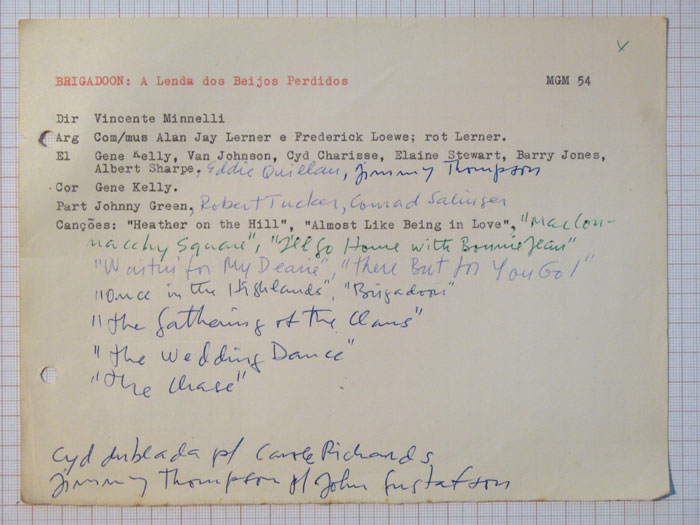 BRIGADOON: A Lenda dos Beijos Perdidos MGM 54
Dir Vincente Minnelli
Arg Com/mus Alan Jay Lerner e Frederick Loewe; rot Lerner.
El Gene Kelly, Van Johnson, Cyd Charisse, Elaine Stewart, Barry Jones,
Albert Sharpe, Eddie Quillan, Jimmy Thompson
Cor Gene Kelly.
Part Johnny Green, Robert Tucker, Conrad Salinger
Canções: "Heather on the Hill", "Almost Like Being in Love", "MacCon-
nacchy Square", "I'll Go Home with Bonnie Jean"
"Waitin' for My Dearie", "There But for You Go I"
"Once in the Highlands", "Brigadoon"
"The Gathering of the Clans"
"The Wedding Dance"
"The Chase"
Cyd dublada p/ Carole Richards
Jimmy Thompson p/ John Gustafson